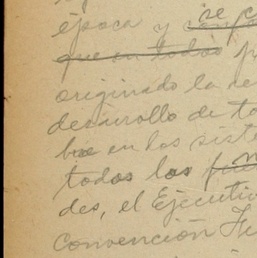 se c
época y
que en todos p
originado la ne
desarrollo de to
en los siste
todos los
des, el Ejecutiv
Convención Fe